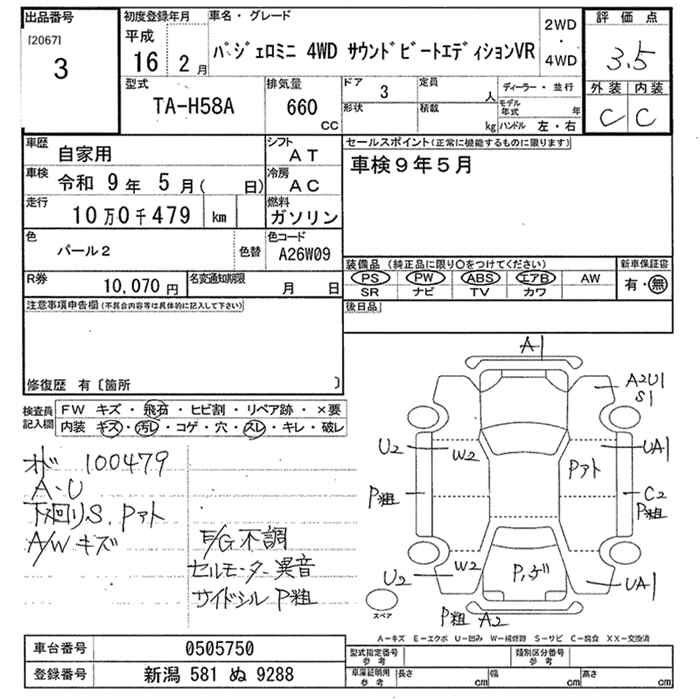 出品番号
[2067]
3
初度登録年月
平成
16 2月
車名・グレード
パジェロミニ 4WD サウンドビートエディションVR
2WD
・
4WD
評価点
3.5
外装 内装
C C
型式
TA-H58A
排気量
660
CC
ドア 3
形状
定員 人
積載 kg
ディーラー・並行
モデル年式 年
ハンドル 左・右
車歴
自家用
シフト
AT
車検
令和 9年 5月( 日)
冷房
AC
走行
10万0千479 km
燃料
ガソリン
色
パール2
色替
色コード
A26W09
R券
10,070円
名変通知期限
月 日
セールスポイント(正常に機能するものに限ります)
車検9年5月
装備品(純正品に限り○をつけてください)
PS PW ABS エアB AW
SR ナビ TV カワ
新車保証書
有・無
後日品
注意事項申告欄(不具合内容等は具体的に記入して下さい)
修復歴 有〔箇所 〕
検査員記入欄
FW キズ・飛石・ヒビ割・リペア跡・×要
内装 キズ・汚レ・コゲ・穴・スレ・キレ・破レ
オド 100479
A・U
下回りS、Pアト
A/W キズ
E/G 不調
セルモーター異音
サイドシル P粗
A1
A2U1
S1
U2
W2
Pアト
UA1
P粗
C2
P粗
U2
W2
P,ゲ
UA1
P粗 A2
スペア
A-キズ E-エクボ U-凹み W-補修跡 S-サビ C-腐食 XX-交換済
車台番号 0505750
登録番号 新潟 581 ぬ 9288
型式指定番号
参考
類別区分番号
参考
車庫証明用
参考
長さ cm
幅 cm
高さ cm